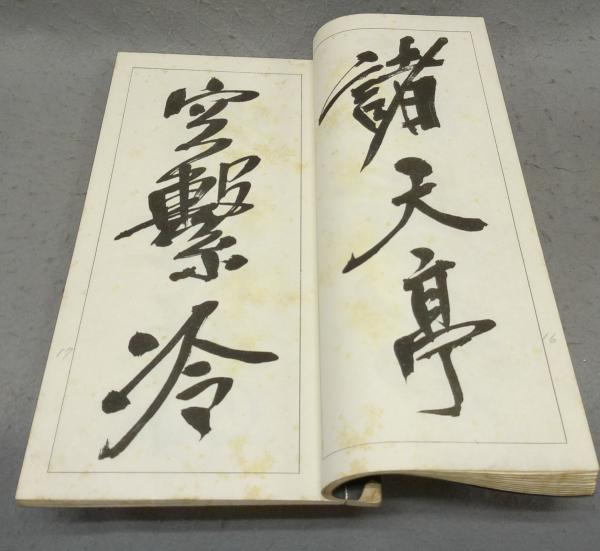 諸天亭
空繫冷
16
17